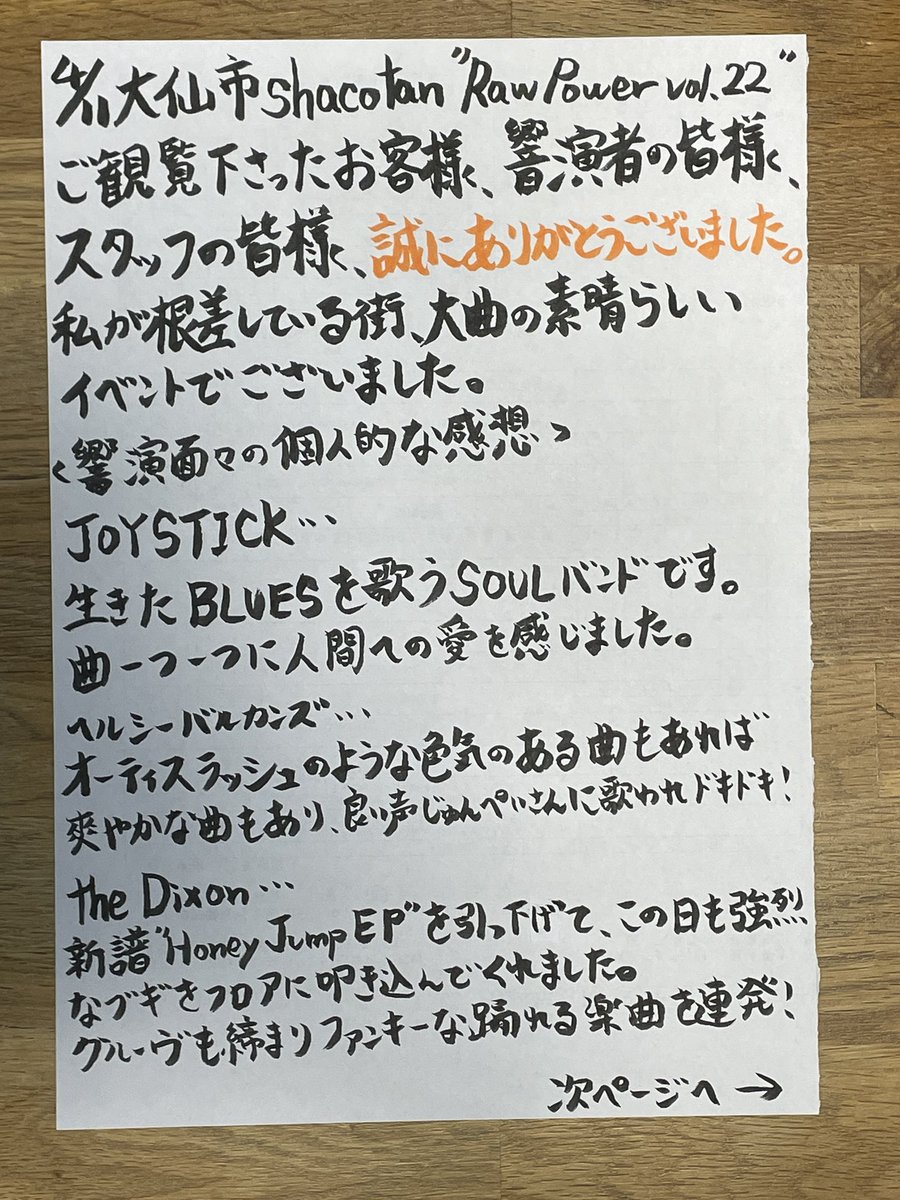 4/11大仙市shacotan"Raw Power vol.22"
ご観覧下さったお客様、響演者の皆様、
スタッフの皆様、誠にありがとうございました。
私が根差している街、大曲の素晴らしい
イベントでございました。
<響演面々の個人的な感想>
JOYSTICK…
生きたBLUESを歌うSOULバンドです。
曲一つ一つに人間への愛を感じました。
ヘルシーバルカンズ…
オーティスラッシュのような色気のある曲もあれば
爽やかな曲もあり、良い声じゅんぺいさんに歌われドキドキ!
the Dixon…
新譜"Honey Jump EP"を引っ下げて、この日も強烈
なブギをフロアに叩き込んでくれました。
グルーヴも締まりファンキーな踊れる楽曲を連発!
次ページへ→